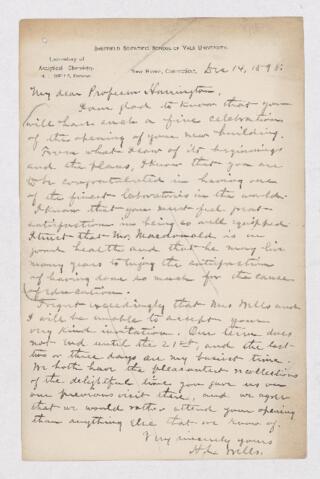 SHEFFIELD SCIENTIFIC SCHOOL OF YALE UNIVERSITY.
Laboratory of
Analytical Chemistry.
NEW HAVEN, CONNECTICUT, Dec 14, 1898.
My dear Professor Harrington,
I am glad to know that you
will have such a fine celebration
of the opening of your new building.
From what I saw of its beginnings
and the plans, I know that you are
to be congratulated in having one
of the finest laboratories in the world.
I know that you must feel great
satisfaction in being so well equipped.
I trust that Mr. Macdonald is in
good health and that he may live
many years to enjoy the satisfaction
of having done so much for the cause
of education.
I regret exceedingly that Mrs Wells and
I will be unable to accept your
very kind invitation. Our term does
not end until the 21st, and the last
two or three days are my busiest time.
We both have the pleasantest recollections
of the delightful time you gave us on
our previous visit there, and we agree
that we would rather attend your opening
than anything else that we know of.
Very sincerely yours
H. L. Wells.